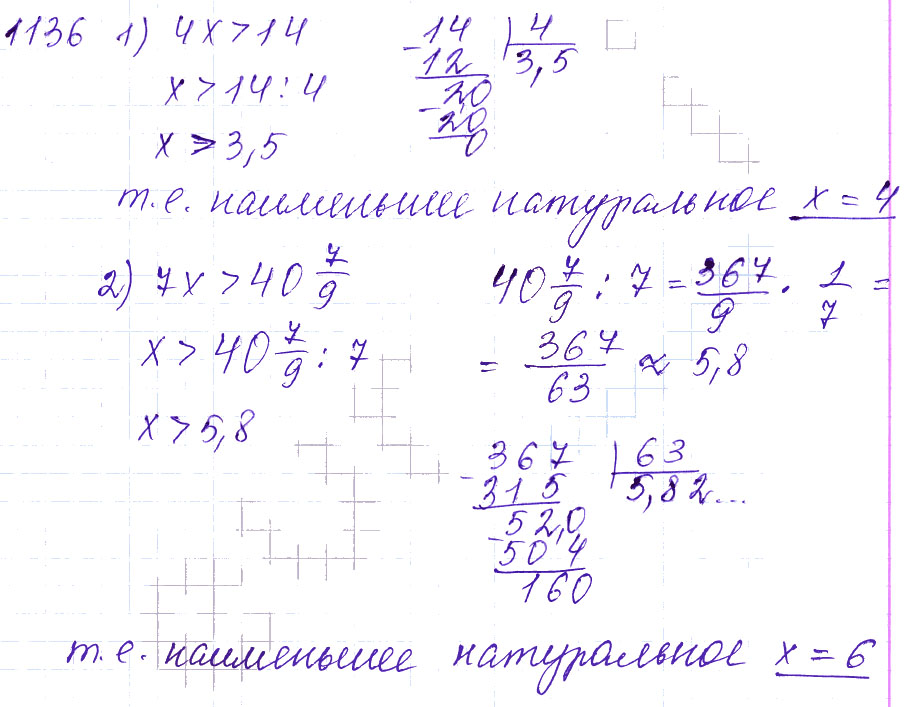 1136 1) 4x > 14
x > 14 : 4
x > 3,5
14 | 4
- 12 3,5
2,0
- 20
0
т.е. наименьшее натуральное x = 4
2) 7x > 40 7/9
x > 40 7/9 : 7
x > 5,8
40 7/9 : 7 = 367/9 · 1/7 =
= 367/63 ≈ 5,8
367 | 63
- 315 5,82...
52,0
- 504
160
т.е. наименьшее натуральное x = 6